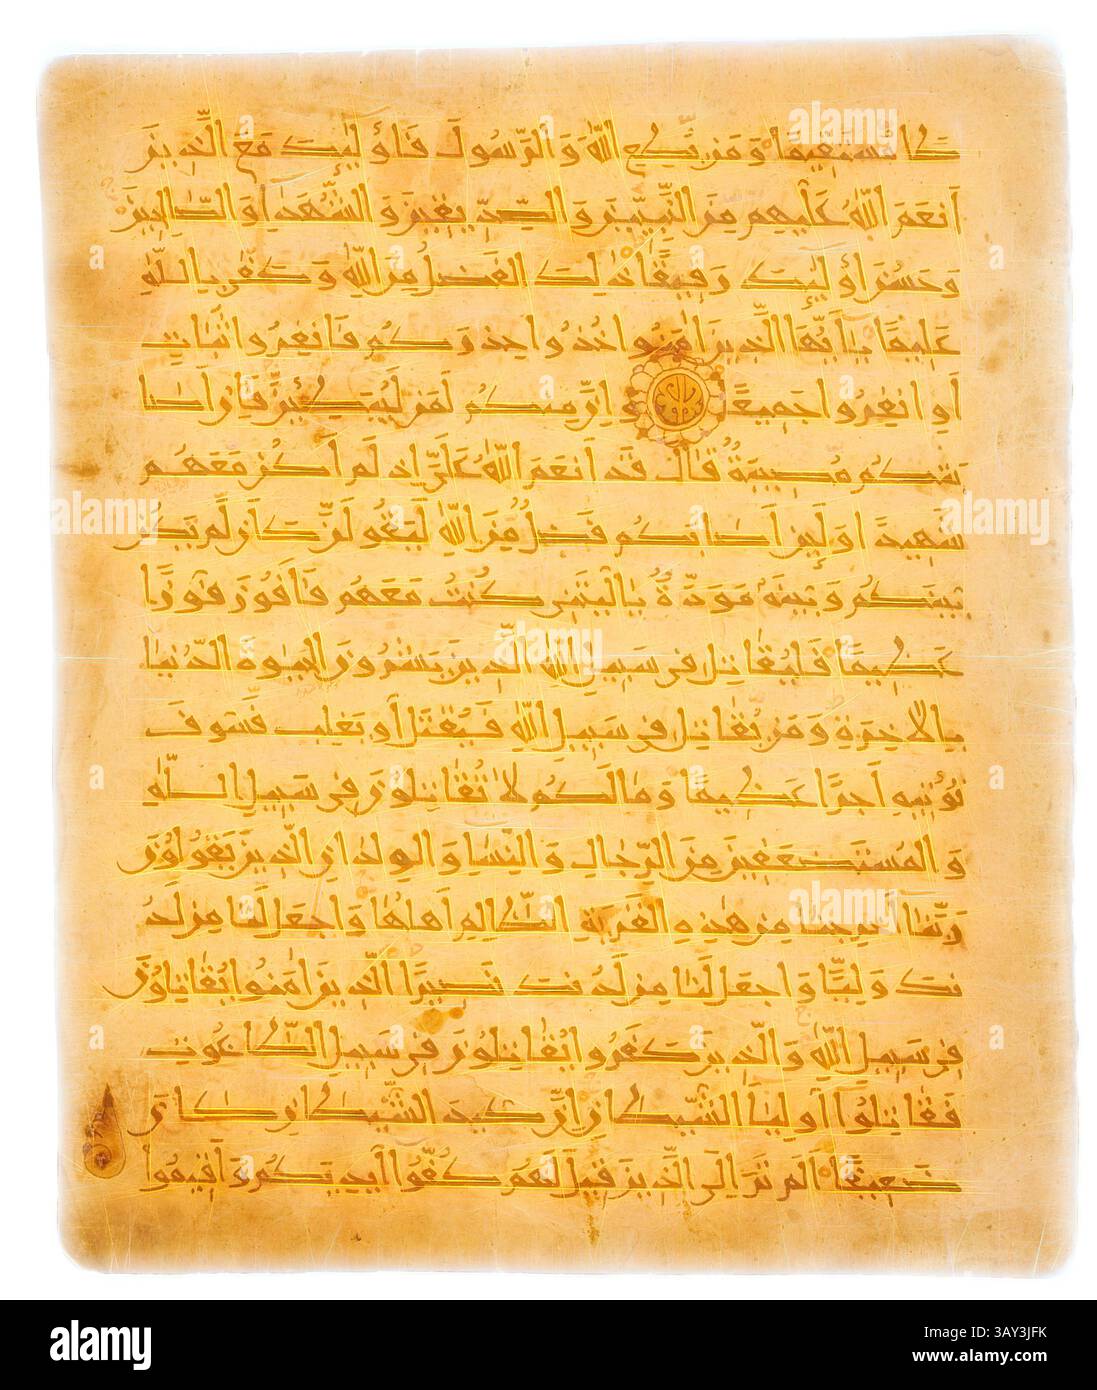 طا مستقيما ومن يطع الله والرسول فأولئك مع الذين
أنعم الله عليهم من النبيين والصديقين والشهدا والصالحين
وحسن أولئك رفيقا ذلك الفضل من الله وكفى بالله
عليما يأيها الذين ءامنوا خذوا حذركم فانفروا ثبات
أو انفروا جميعا وإن منكم لمن ليبطئن فإن أصا
بتكم مصيبة قال قد أنعم الله علي إذ لم أكن معهم
شهيدا ولئن أصابكم فضل من الله ليقولن كأن لم تكن
بينكم وبينه مودة يا ليتني كنت معهم فأفوز فوزا
عظيما فليقاتل في سبيل الله الذين يشرون الحيوة الدنيا
بالأخرة ومن يقاتل في سبيل الله فيقتل أو يغلب فسوف
نؤتيه أجرا عظيما وما لكم لا تقاتلون في سبيل الله
والمستضعفين من الرجال والنسا والولدان الذين يقولون
ربنا أخرجنا من هذه القرية الظالم أهلها واجعل لنا من لد
نك وليا واجعل لنا من لدنك نصيرا الذين ءامنوا يقاتلون
في سبيل الله والذين كفروا يقاتلون في سبيل الطاغوت
فقاتلوا أوليا الشيطان إن كيد الشيطان كان
ضعيفا ألم تر إلى الذين قيل لهم كفوا أيديكم وأقيموا
alamy
Image ID: 3AY3JFK
www.alamy.com